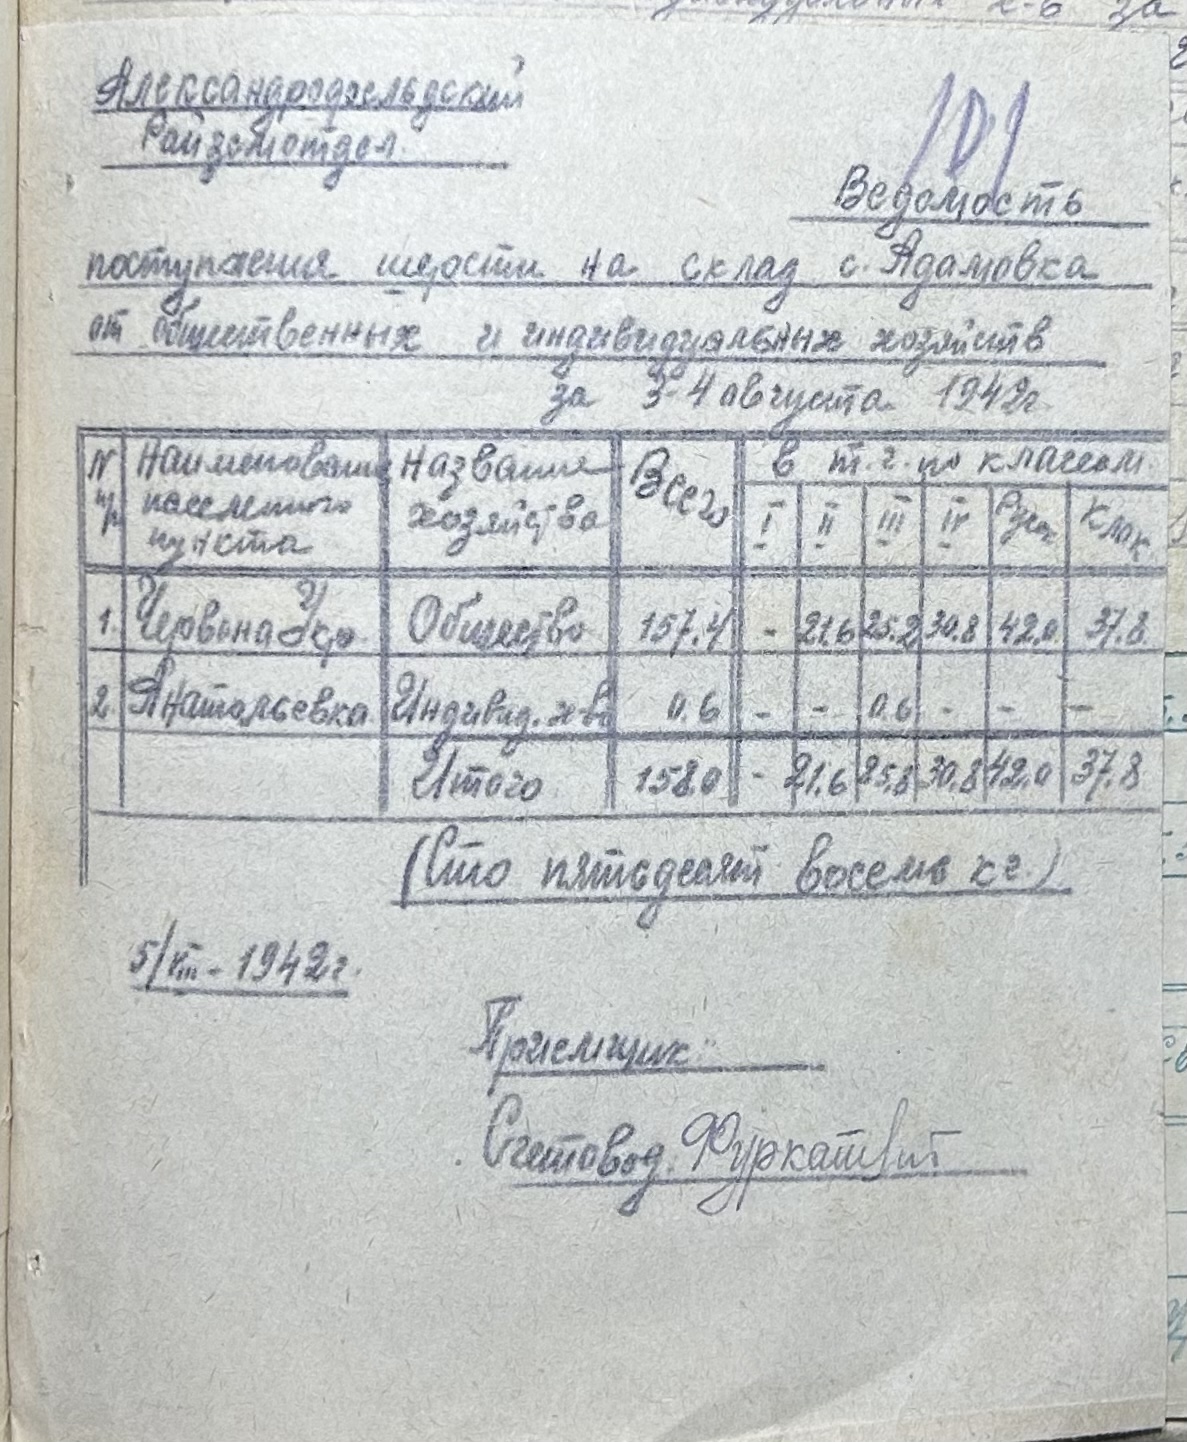 Александрофельдский
Райземотдел.
Ведомость
поступления шерсти на склад с. Адамовка
от общественных и индивидуальных хозяйств
за 3-4 августа 1942г
N п/п Наименование населенного пункта Название хозяйства Всего в т.ч. по классам.
I II III IV Руск Клак
1. Червона Укр. Общество 157.4 - 21.6 25.2 30.8 42.0 37.8
2. Анатольевка Индивид. х-во 0.6 - - 0.6 - - -
Итого 158.0 - 21.6 25.8 30.8 42.0 37.8
(Сто пятьдесят восемь кг.)
5/VIII - 1942г.
Приемщик:
Счетовод: